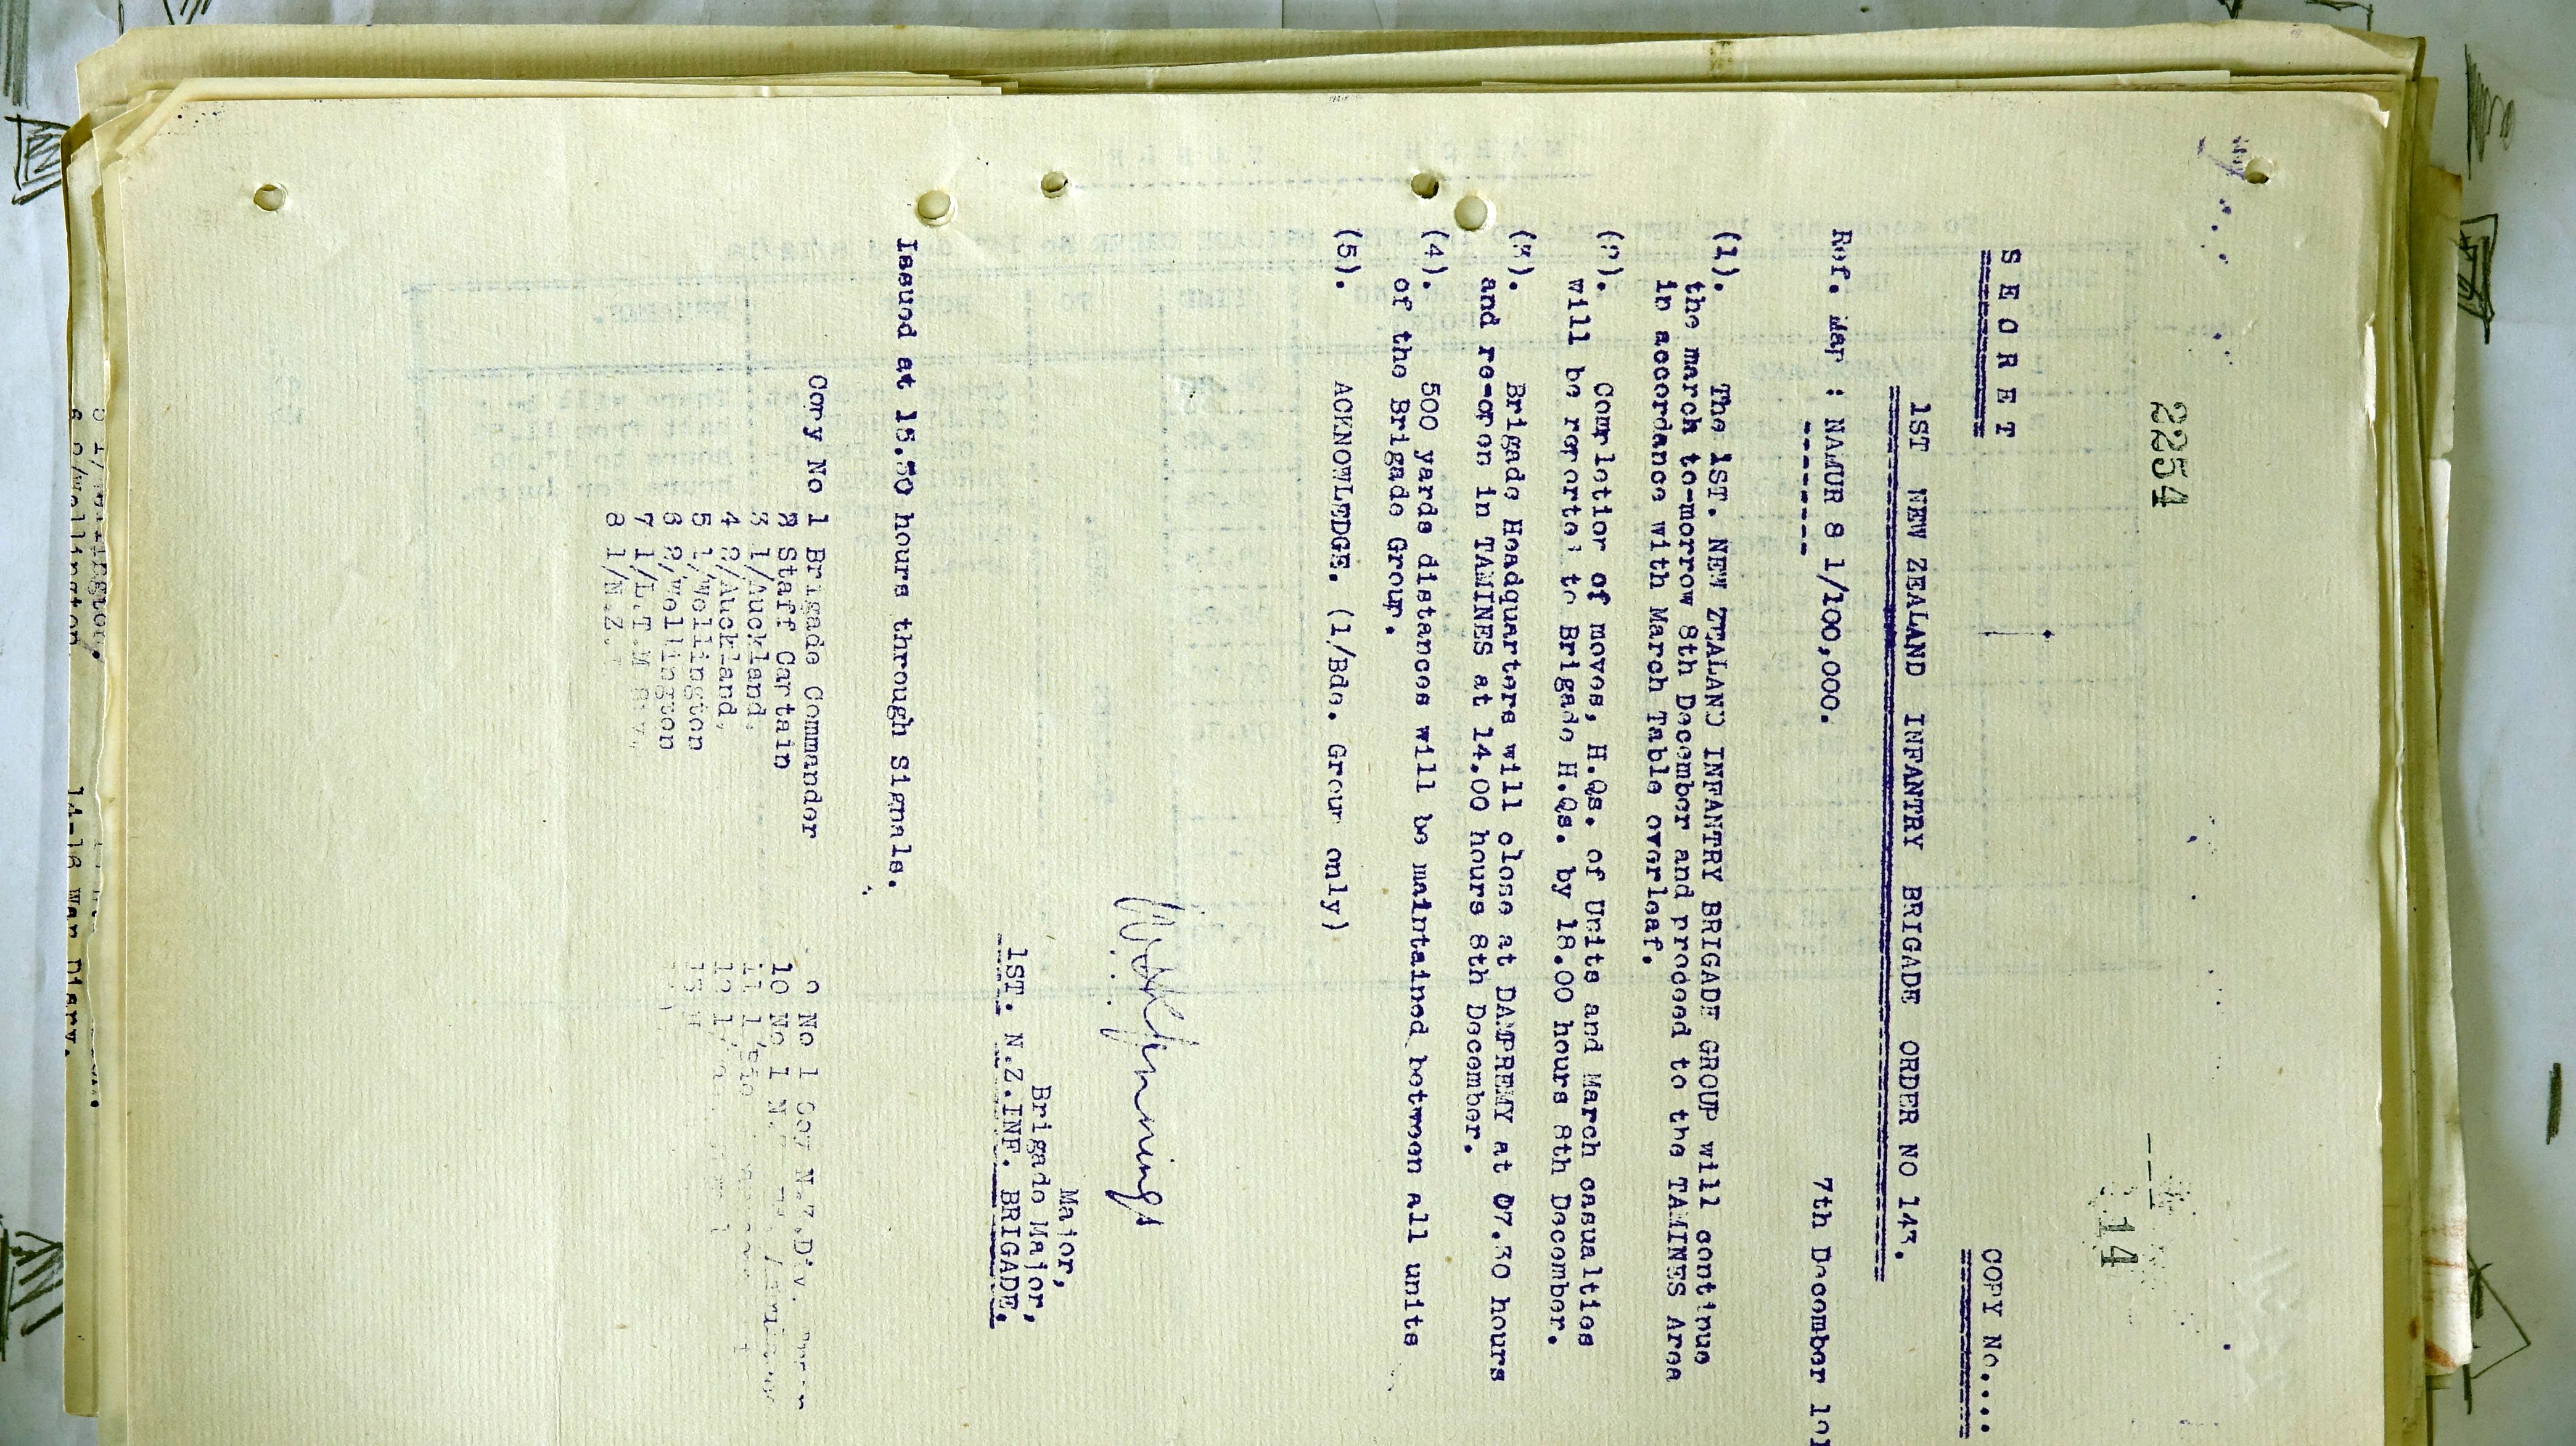 2254
14
SECRET
COPY No....
1ST NEW ZEALAND INFANTRY BRIGADE ORDER NO 143.
Ref. Map : NAMUR 8 1/100,000.
7th December 191
(1). The 1ST. NEW ZEALAND INFANTRY BRIGADE GROUP will continue
the march to-morrow 8th December and proceed to the TAMINES Area
in accordance with March Table overleaf.
(2). Completion of moves, H.Qs. of Units and March casualties
will be reported to Brigade H.Qs. by 18.00 hours 8th December.
(3). Brigade Headquarters will close at DAMPREMY at 07.30 hours
and re-open in TAMINES at 14.00 hours 8th December.
(4). 500 yards distances will be maintained between all units
of the Brigade Group.
(5). ACKNOWLEDGE. (1/Bde. Group only)
Major,
Brigade Major,
1ST. N.Z.INF. BRIGADE.
Issued at 15.30 hours through Signals.
Copy No 1 Brigade Commander
2 Staff Captain
3 1/Auckland,
4 2/Auckland,
5 1/Wellington
6 2/Wellington
7 1/L.T.M.Bty,
8 1/N.Z.
9 No 1 Coy N.Z.Div.
10 No 1 N.
6 2/Wellington
14-16 War Diary.